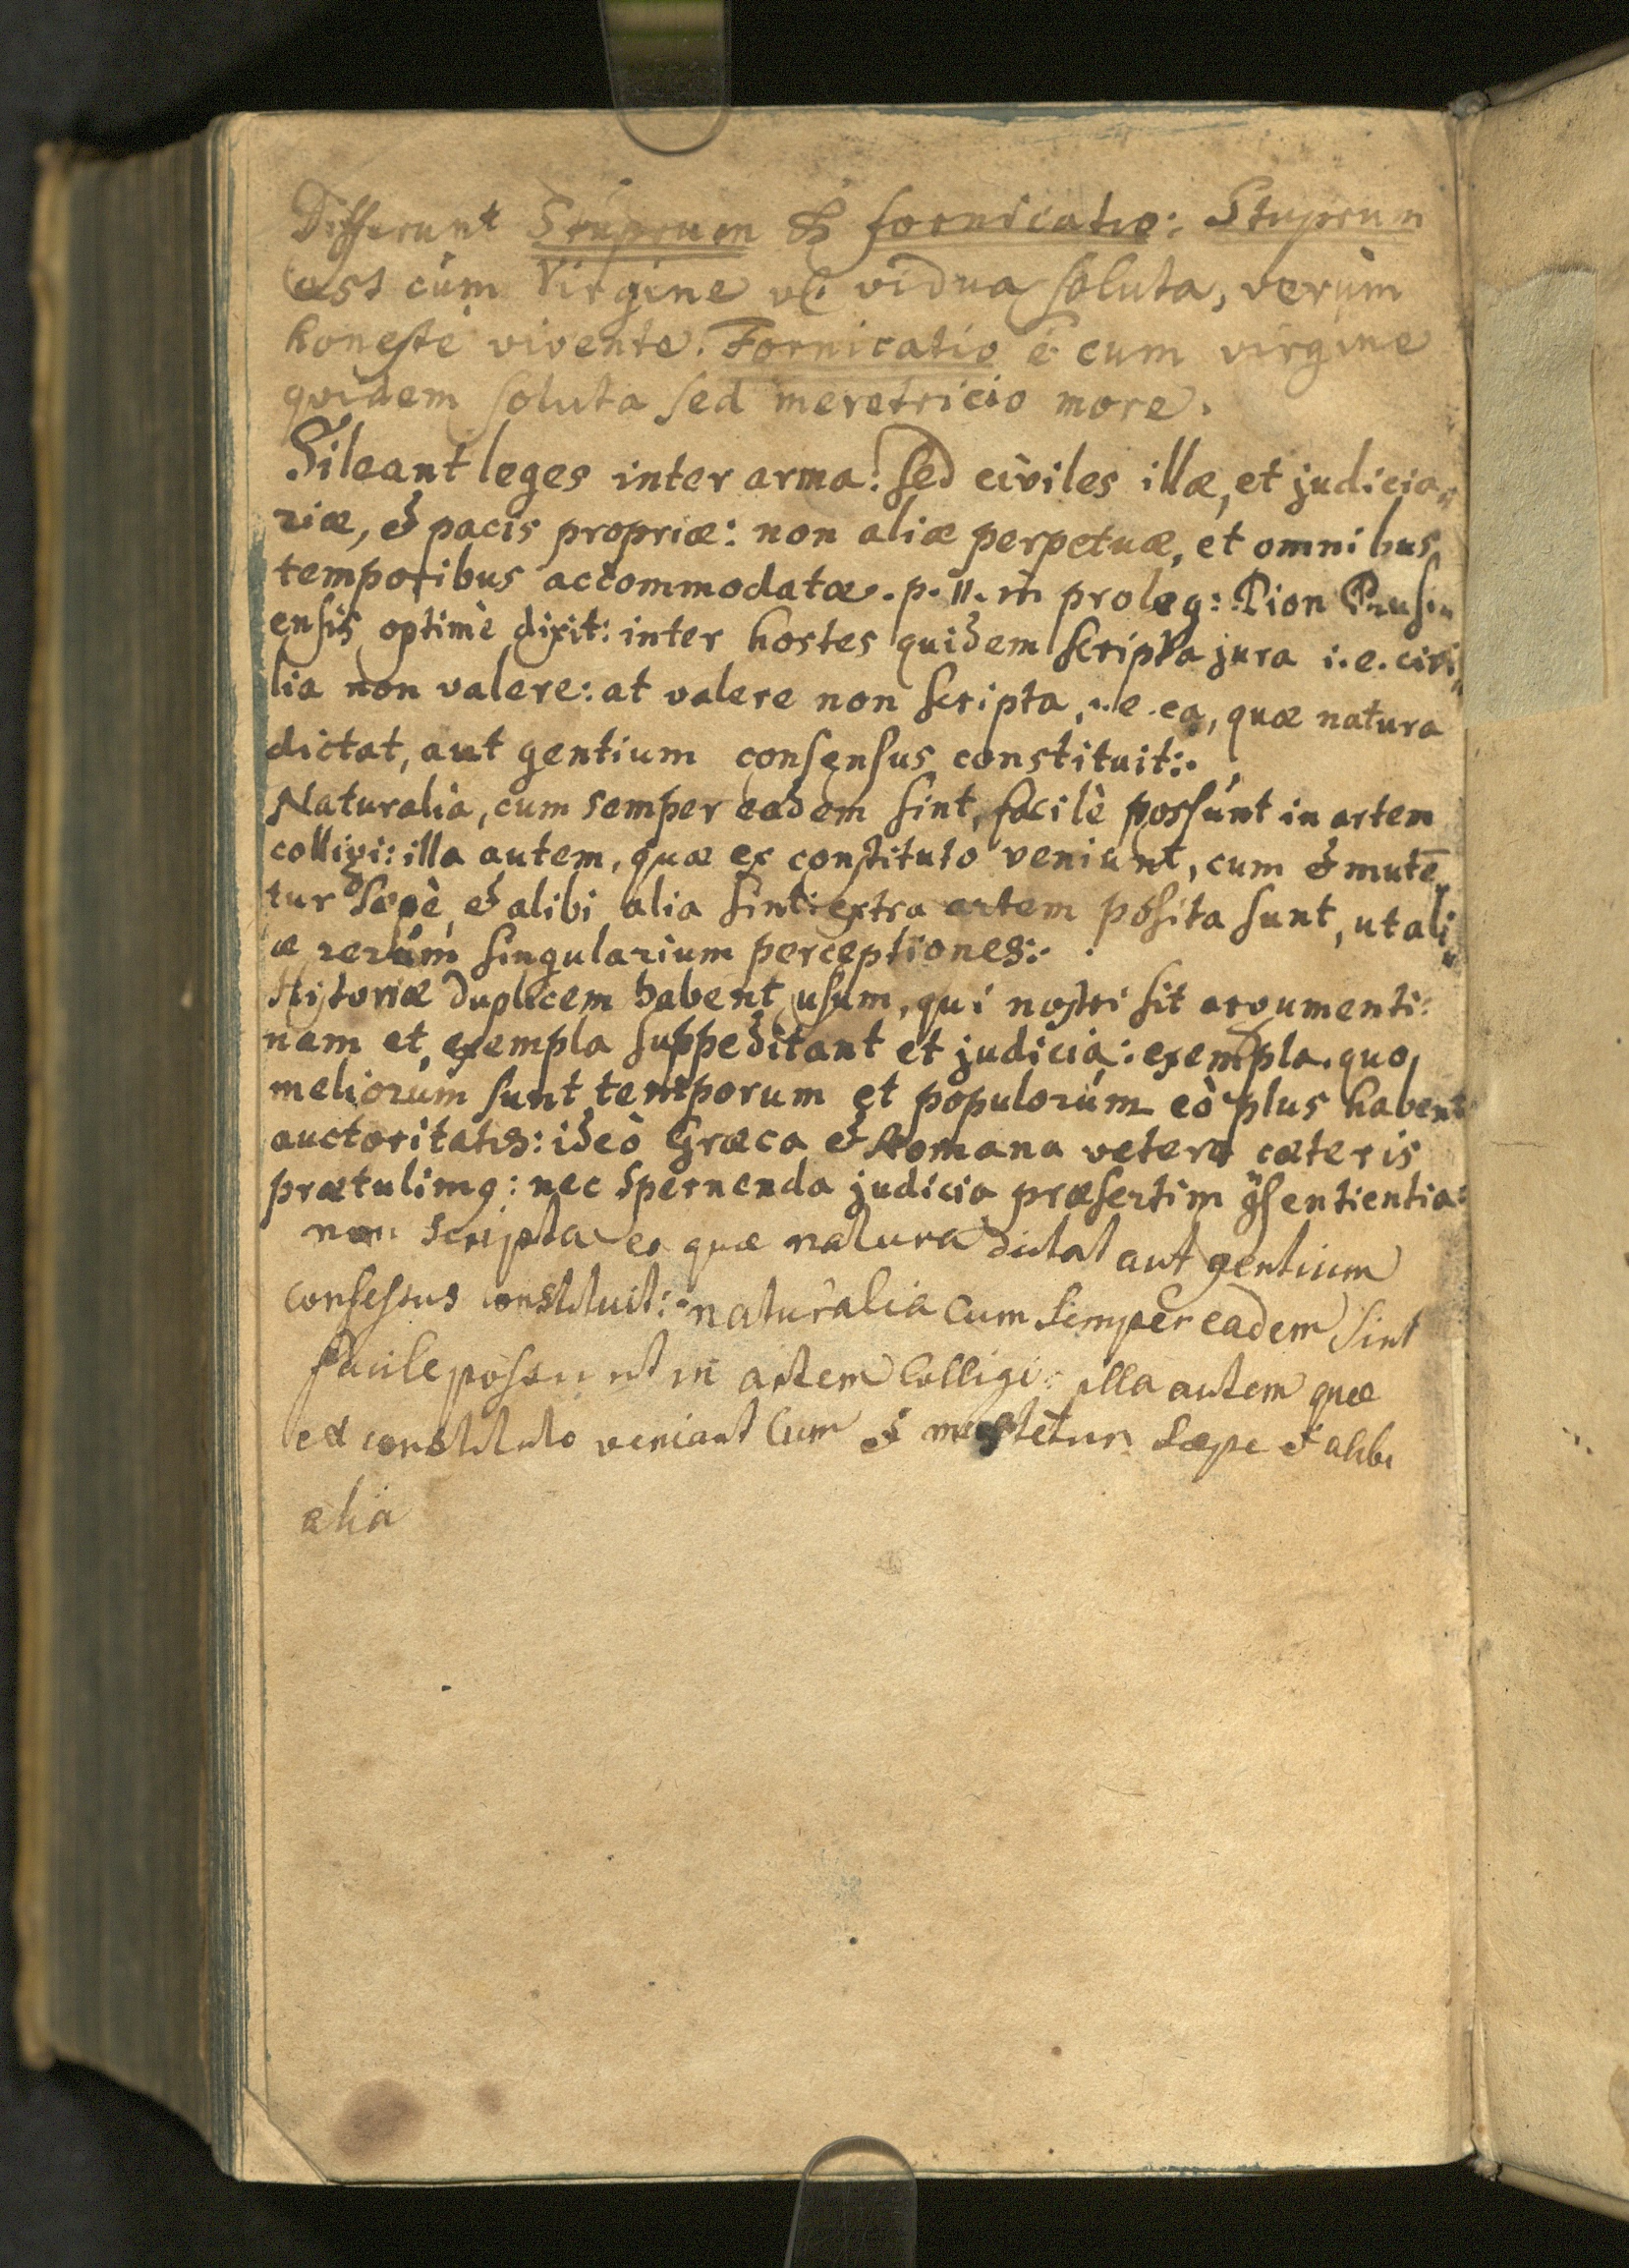 Differunt Stuprum & fornicatio: Stuprum
est cùm Virgine vĺ. vidua soluta, verùm
honestè vivente. Fornicatio ē cum virgine
quidem soluta sed meretricio more.
Sileant leges inter arma: sed civiles illæ, et judicia„
riæ, & pacis propriæ: non aliæ perpetuæ, et omnibus
temporibus accommodatæ. p. 11. m̄ proleg: Dion Prusi„
ensis optimè dixit: inter hostes quidem scripta jura i. e. civi„
lia non valere: at valere non scripta, i. e. ea, quæ natura
dictat, aut gentium consensus constituit:.
Naturalia, cum semper eadem sint, facilè possúnt in artem
colligi: illa autem, quæ ex constituto veniunt, cum & mutē„
tur sæpè, & alibi alia sint: extra artem posita sunt, ut ali„
æ rerúm singularium perceptiones:.
Historiæ duplicem habent usum, qui nostri sit argumenti:
nam et exempla suppeditant et judicia: exempla, quo
meliorúm sunt temporum et populorúm eò plus habent
auctoritatis: ideò Græca & Romana vetera cæteris
prætulimq: nec spernenda judicia præsertim ꝯsentientia:
non scripta ea quæ natura dictat aut gentium
consessus constituit:. naturalia Cum Semper eadem Sint
facile possunt in artem Colligi: illa autem quæ
ex constituto veniant Cum & mutētur Sæpe & alibi
alia